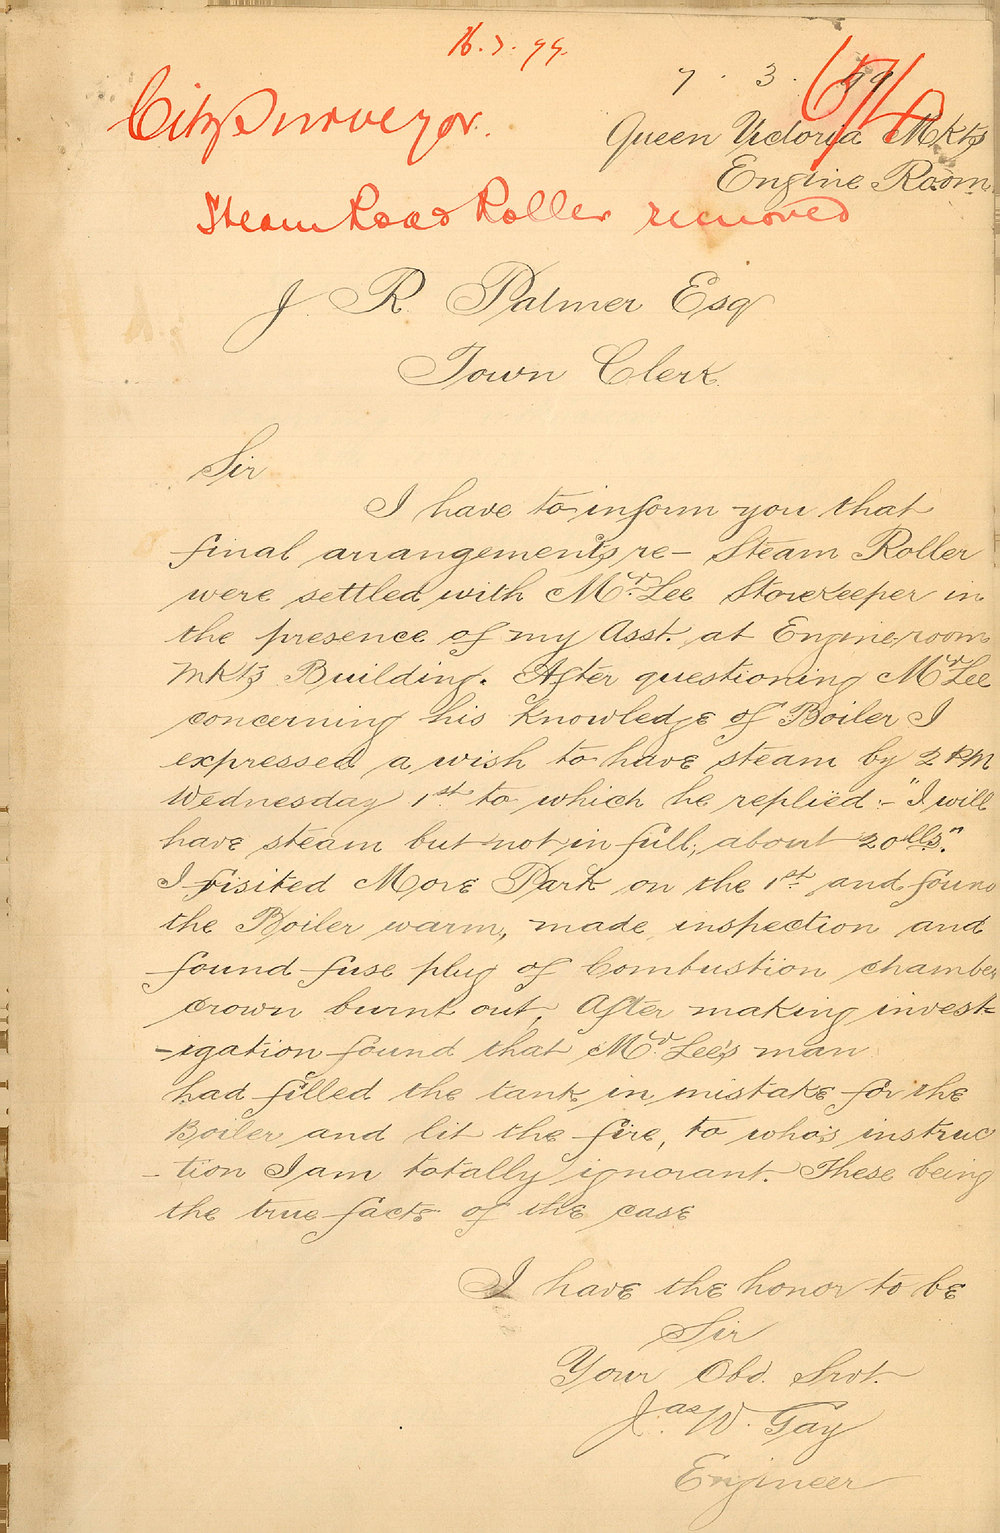 16.3.99.
7.3.99
City Surveyor.
Queen Victoria Mkts
Engine Room
Steam Road Roller removed
J. R. Palmer Esq
Town Clerk.
Sir
I have to inform you that
final arrangements re- Steam Roller
were settled with Mr. Lee Storekeeper in
the presence of my Asst. at Engine room
Mkts Building. After questioning Mr. Lee
concerning his knowledge of Boiler I
expressed a wish to have steam by 2 PM
Wednesday 1st. to which he replied:- "I will
have steam but not in full; about 20 lbs."
I visited More Park on the 1st. and found
the Boiler warm, made inspection and
found fuse plug of Combustion chamber
crown burnt out. After making invest-
-igation found that Mr. Lee's man
had filled the tank in mistake for the
Boiler and lit the fire, to who's instruc
-tion I am totally ignorant. These being
the true facts of the case
I have the honor to be
Sir
Your Obd. Srvt.
Jas. W. Gay
Engineer